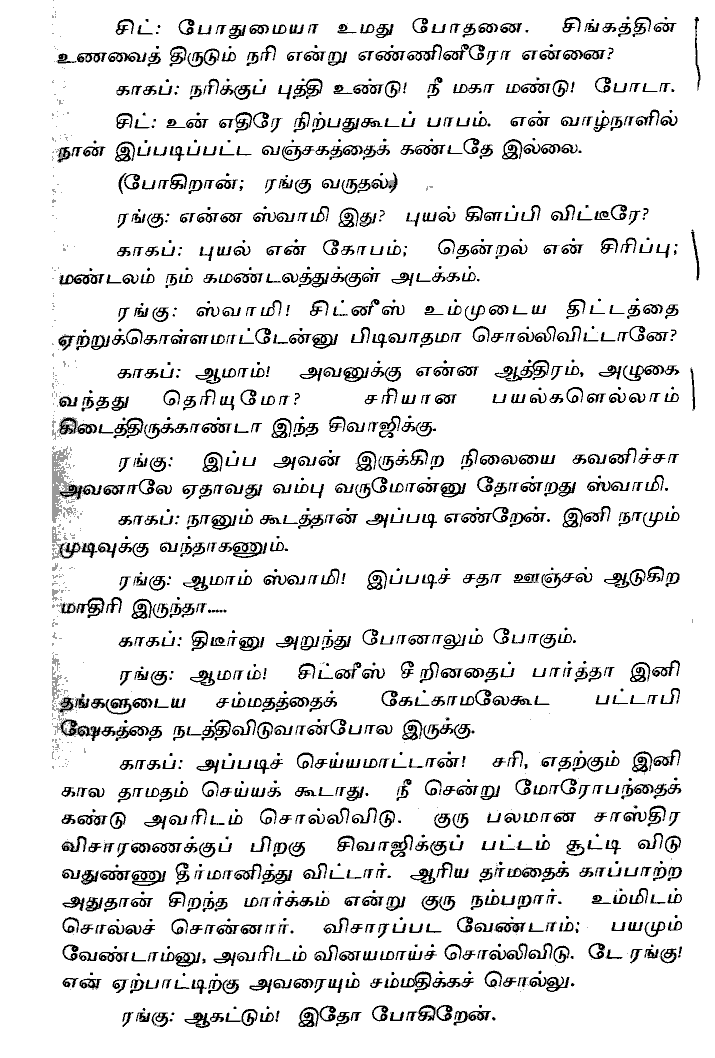 சிட்: போதுமையா உமது போதனை. சிங்கத்தின்
உணவைத் திருடும் நரி என்று எண்ணினீரோ என்னை?
காகப்: நரிக்குப் புத்தி உண்டு! நீ மகா மண்டு! போடா.
சிட்: உன் எதிரே நிற்பதுகூடப் பாபம். என் வாழ்நாளில்
நான் இப்படிப்பட்ட வஞ்சகத்தைக் கண்டதே இல்லை.
(போகிறான்; ரங்கு வருதல்)
ரங்கு: என்ன ஸ்வாமி இது? புயல் கிளப்பி விட்டீரே?
காகப்: புயல் என் கோபம்; தென்றல் என் சிரிப்பு;
மண்டலம் நம் கமண்டலத்துக்குள் அடக்கம்.
ரங்கு: ஸ்வாமி! சிட்னீஸ் உம்முடைய திட்டத்தை
ஏற்றுக்கொள்ளமாட்டேன்னு பிடிவாதமா சொல்லிவிட்டானே?
காகப்: ஆமாம்! அவனுக்கு என்ன ஆத்திரம், அழுகை
வந்தது தெரியுமோ? சரியான பயல்களெல்லாம்
கிடைத்திருக்காண்டா இந்த சிவாஜிக்கு.
ரங்கு: இப்ப அவன் இருக்கிற நிலையை கவனிச்சா
அவனாலே ஏதாவது வம்பு வருமோன்னு தோன்றது ஸ்வாமி.
காகப்: நானும் கூடத்தான் அப்படி எண்றேன். இனி நாமும்
முடிவுக்கு வந்தாகணும்.
ரங்கு: ஆமாம் ஸ்வாமி! இப்படிச் சதா ஊஞ்சல் ஆடுகிற
மாதிரி இருந்தா.....
காகப்: திடீர்னு அறுந்து போனாலும் போகும்.
ரங்கு: ஆமாம்! சிட்னீஸ் சீறினதைப் பார்த்தா இனி
தங்களுடைய சம்மதத்தைக் கேட்காமலேகூட பட்டாபி
ஷேகத்தை நடத்திவிடுவான்போல இருக்கு.
காகப்: அப்படிச் செய்யமாட்டான்! சரி, எதற்கும் இனி
கால தாமதம் செய்யக் கூடாது. நீ சென்று மோரோபந்தைக்
கண்டு அவரிடம் சொல்லிவிடு. குரு பலமான சாஸ்திர
விசாரணைக்குப் பிறகு சிவாஜிக்குப் பட்டம் சூட்டி விடு
வதுண்ணு தீர்மானித்து விட்டார். ஆரிய தர்மதைக் காப்பாற்ற
அதுதான் சிறந்த மார்க்கம் என்று குரு நம்பறார். உம்மிடம்
சொல்லச் சொன்னார். விசாரப்பட வேண்டாம்; பயமும்
வேண்டாம்னு, அவரிடம் வினயமாய்ச் சொல்லிவிடு. டே ரங்கு!
என் ஏற்பாட்டிற்கு அவரையும் சம்மதிக்கச் சொல்லு.
ரங்கு: ஆகட்டும்! இதோ போகிறேன்.